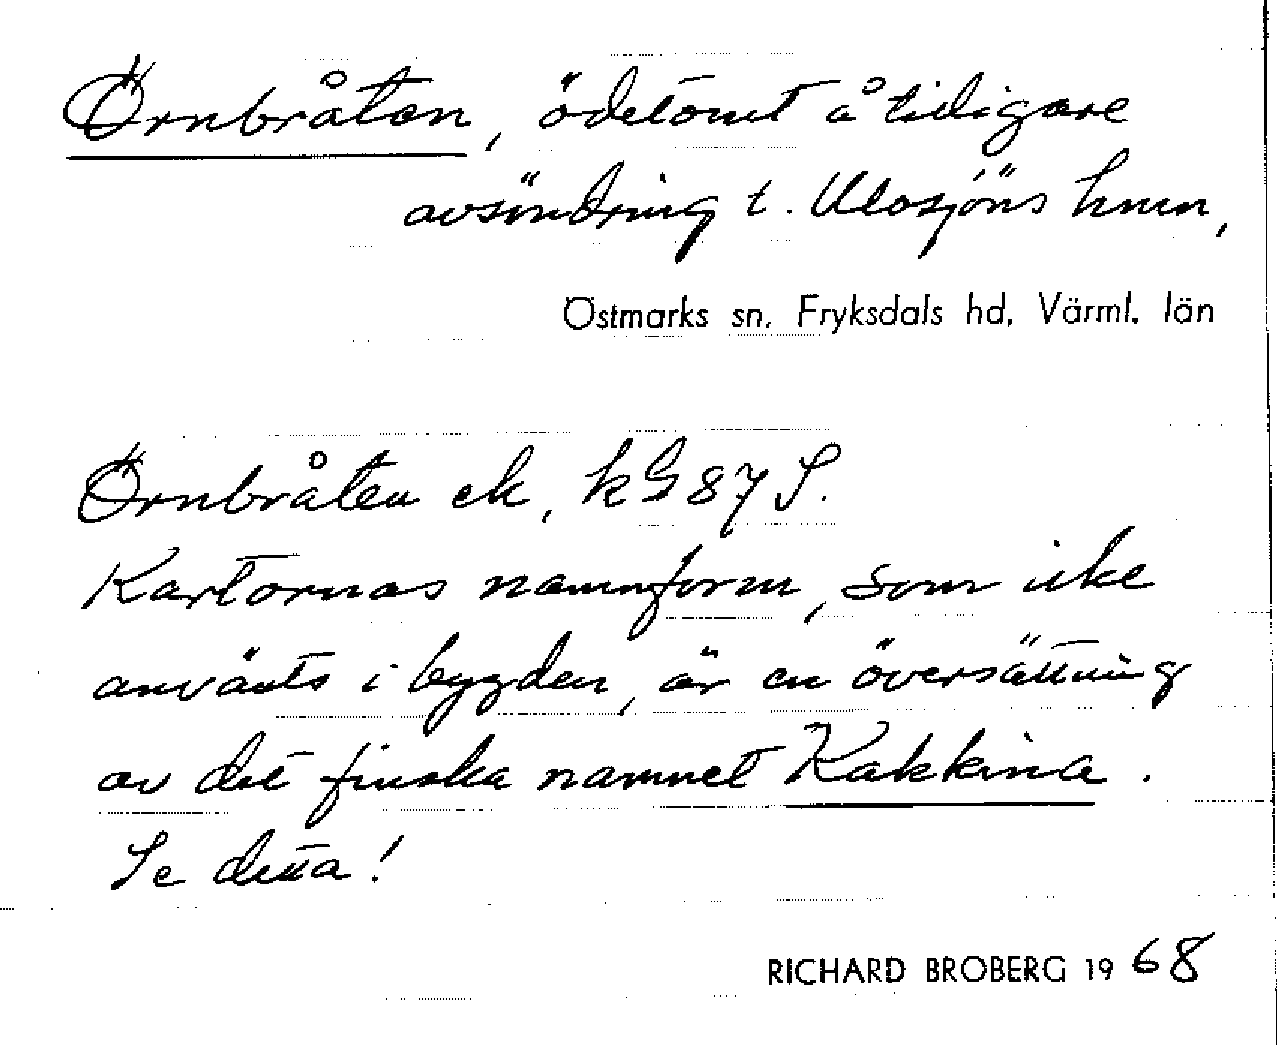 Örnbråten, ödetomt å tidigare
avsöndring t. Ulvsjöns hmn,
Östmarks sn, Fryksdals hd, Värml. län
Örnbråten ek, kG 87 S.
Kartornas namnform, som icke
använts i bygden, är en översättning
av det finska namnet Kakkina.
Se detta!
RICHARD BROBERG 1968